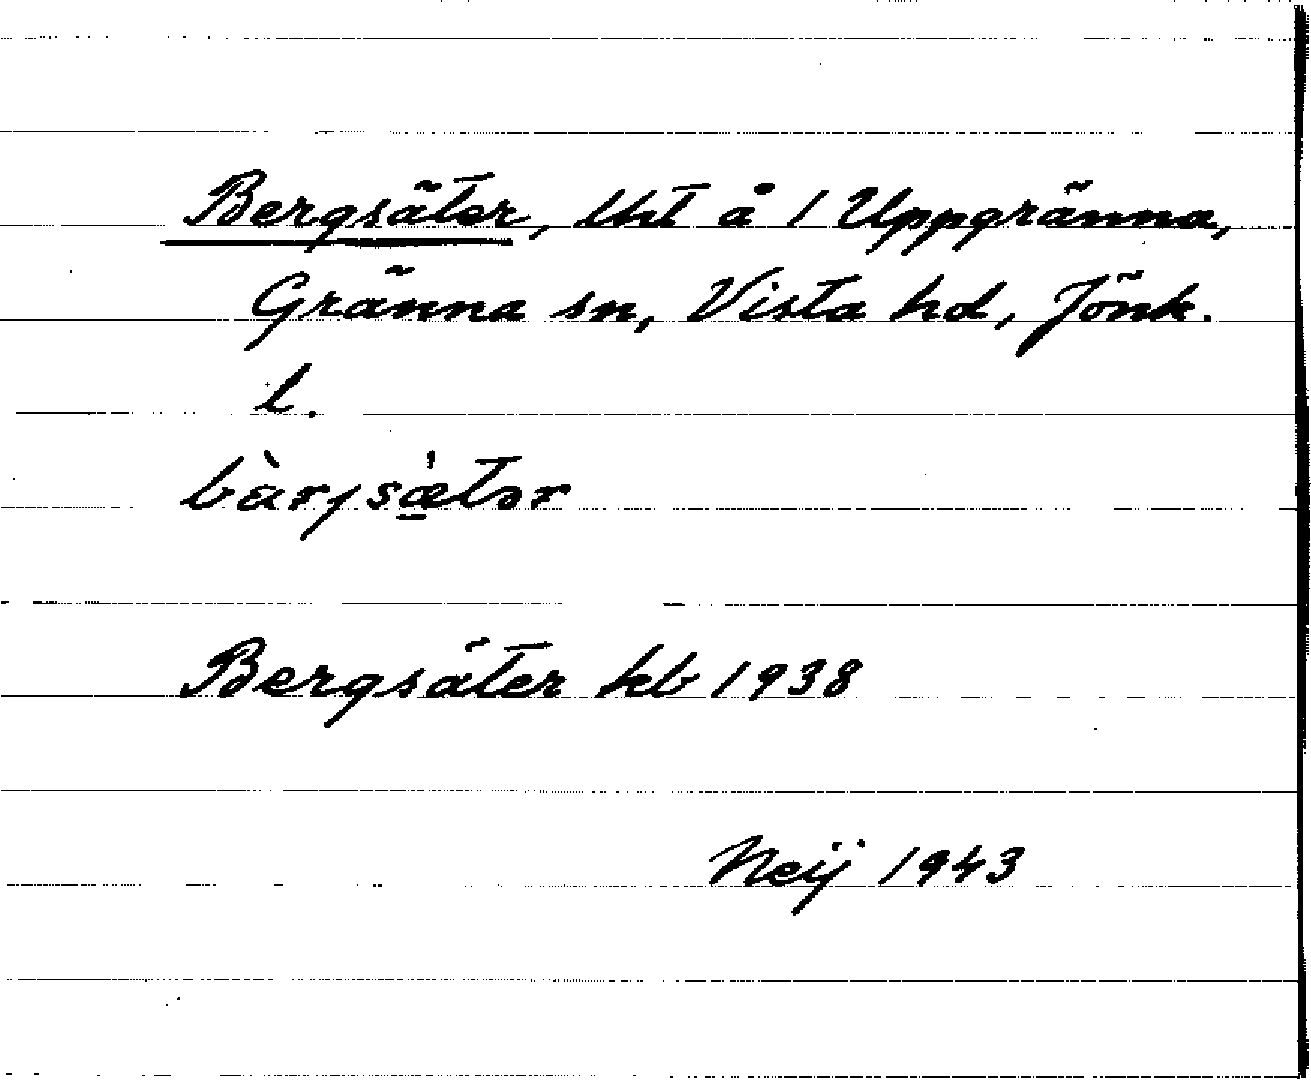 Bergsäter, lht å 1 Uppgränna,
Gränna sn, Vista hd, Jönk.
l.
bàrjsæ̀tər
Bergsäter kb 1938
Neij 1943